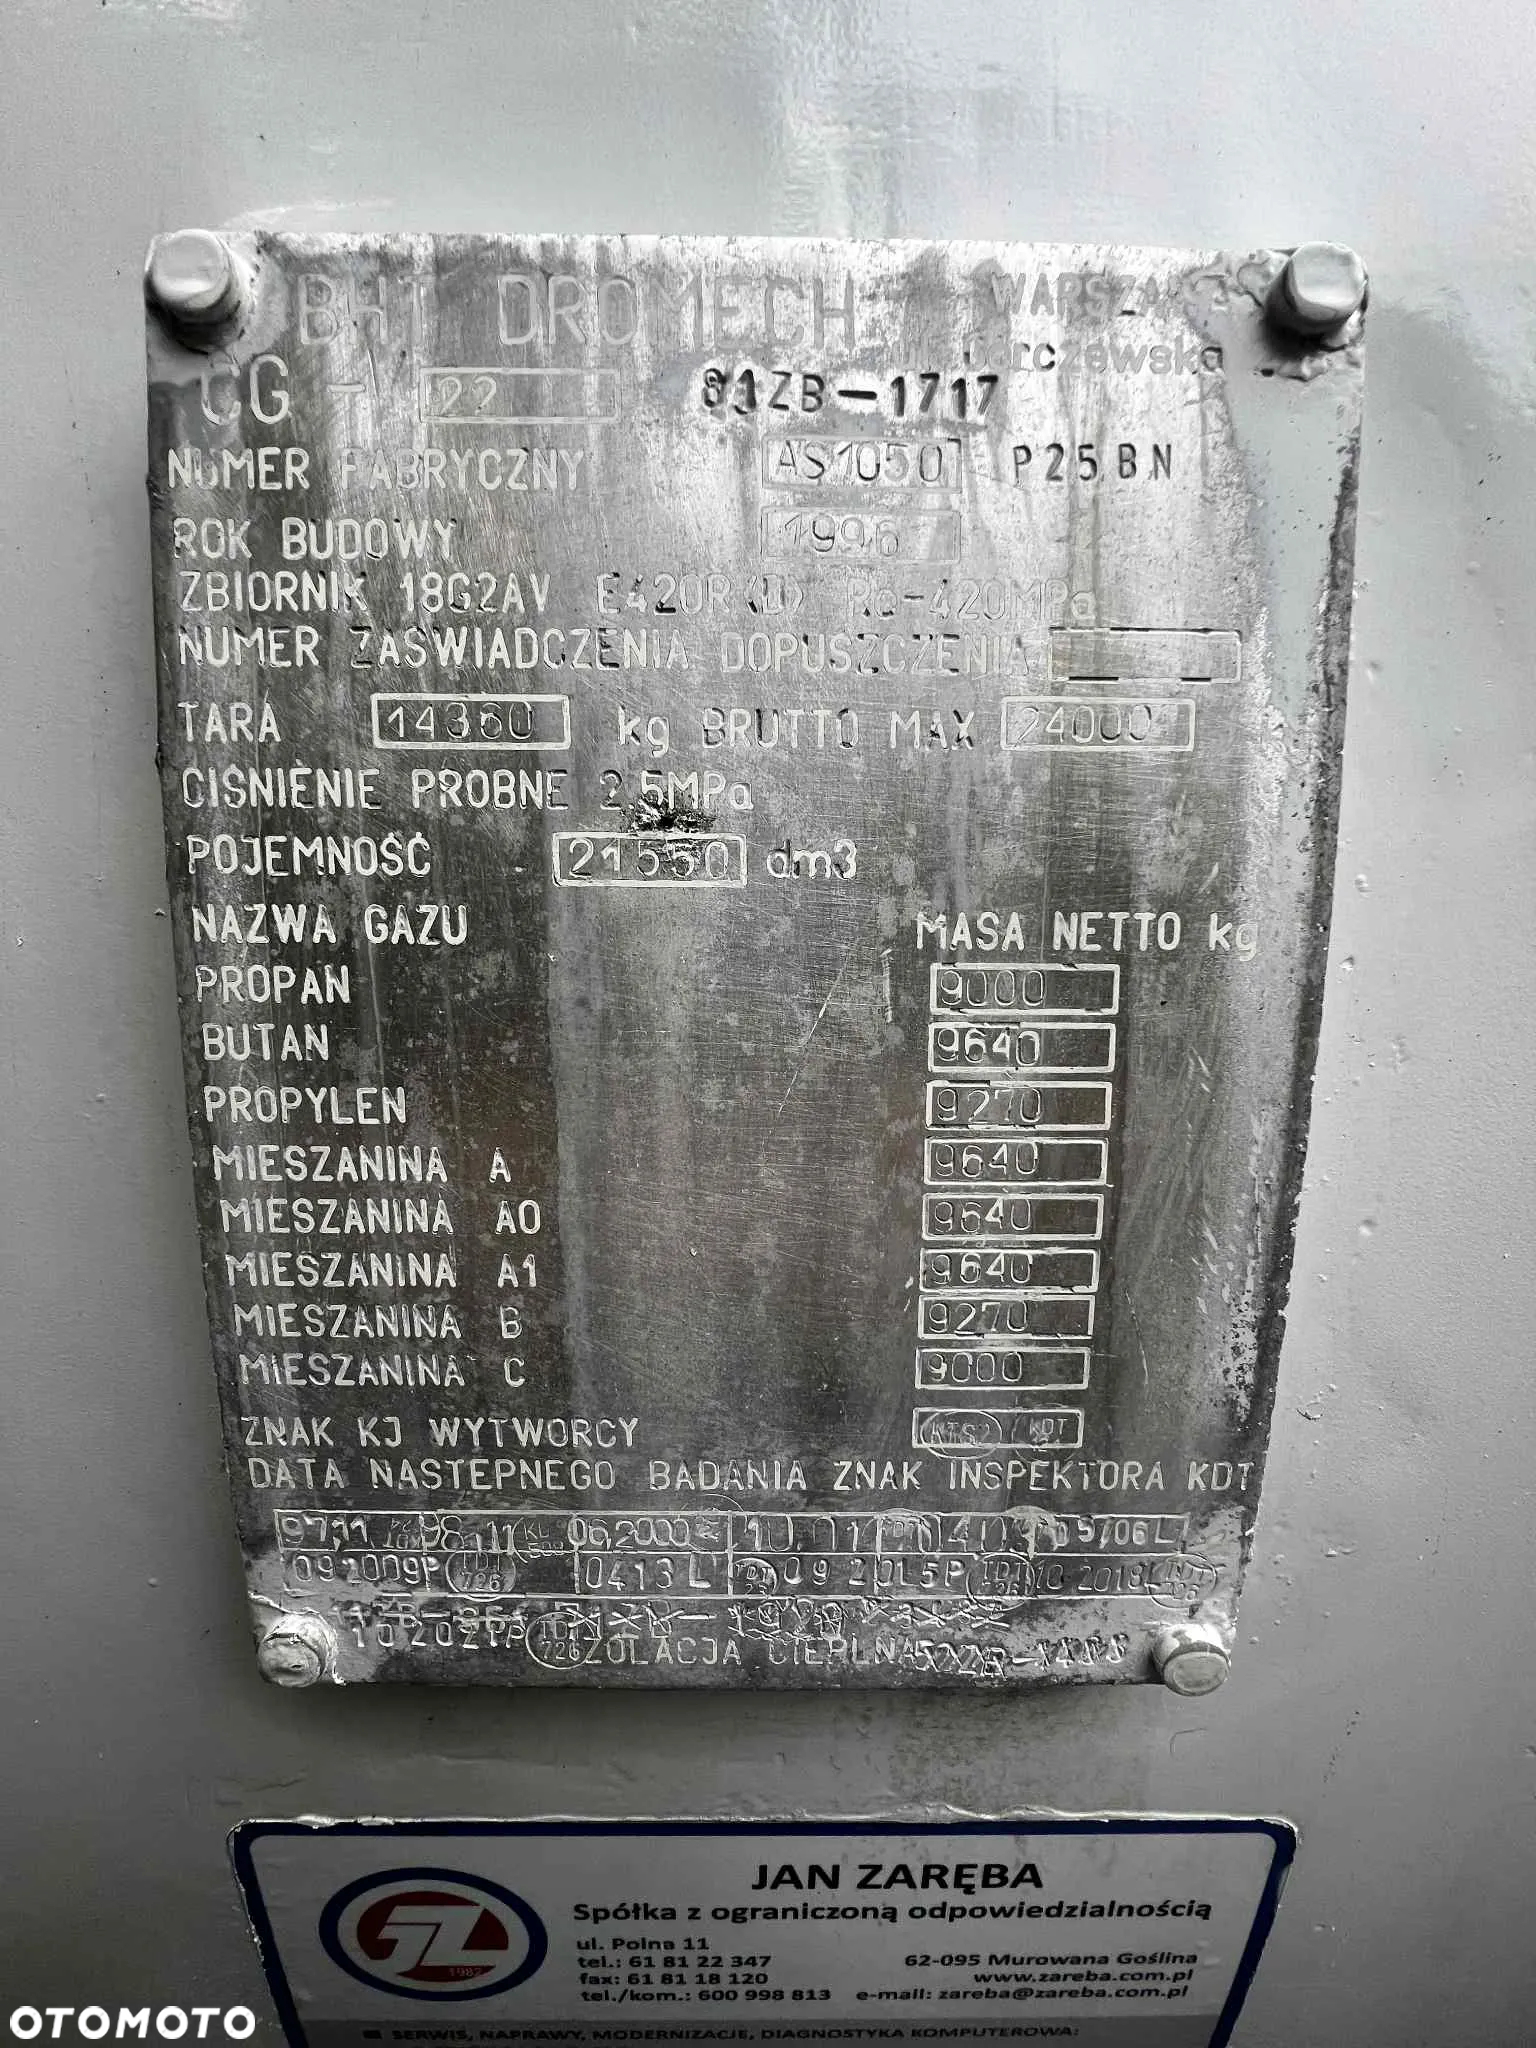 BHT DROMECH WARSZAWA
CG - 22
81ZB-1717
NUMER FABRYCZNY AS1050 P25BN
ROK BUDOWY 1996
ZBIORNIK 18G2AV E420R(D) Re-420MPa
NUMER ZAŚWIADCZENIA DOPUSZCZENIA
TARA 14360 kg BRUTTO MAX 24000
CIŚNIENIE PROBNE 2,5MPa
POJEMNOŚĆ 21550 dm3
NAZWA GAZU MASA NETTO kg
PROPAN 9000
BUTAN 9640
PROPYLEN 9270
MIESZANINA A 9640
MIESZANINA A0 9640
MIESZANINA A1 9640
MIESZANINA B 9270
MIESZANINA C 9000
ZNAK KJ WYTWORCY KTS2 KDT
DATA NASTEPNEGO BADANIA ZNAK INSPEKTORA KDT
97,11 98,11 06,2000 10.01 09/06L
092009P TDT 726 0413L TDT 092015P TDT 10 2018L TDT
102021P TDT 726 IZOLACJA CIEPLNA
JAN ZARĘBA
Spółka z ograniczoną odpowiedzialnością
ul. Polna 11
tel.: 61 81 22 347 62-095 Murowana Goślina
fax: 61 81 18 120 www.zareba.com.pl
tel./kom.: 600 998 813 e-mail: zareba@zareba.com.pl
1982
SERWIS, NAPRAWY, MODERNIZACJE, DIAGNOSTYKA KOMPUTEROWA:
OTOMOTO